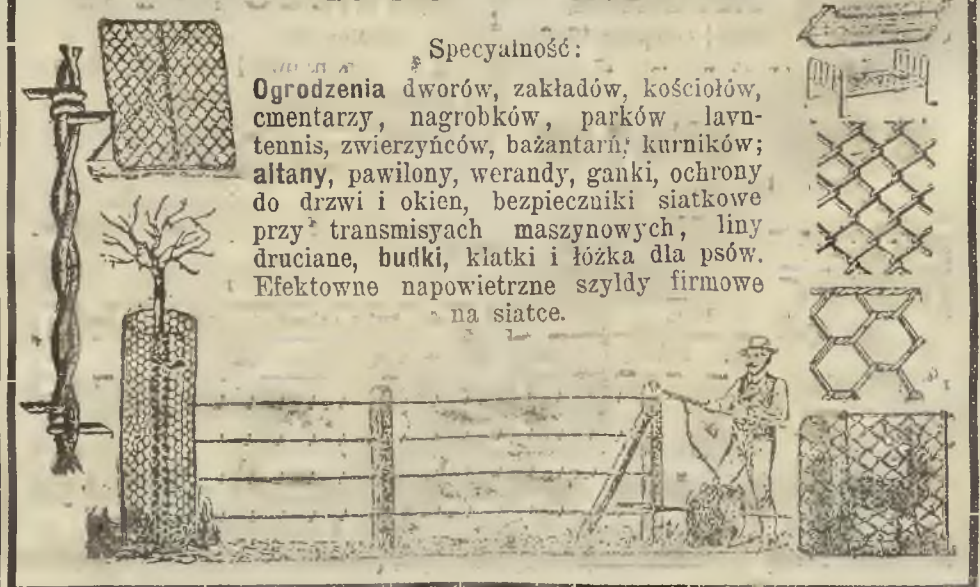 Specyalność:
Ogrodzenia dworów, zakładów, kościołów,
cmentarzy, nagrobków, parków lavn-
tennis, zwierzyńców, bażantarń, kurników;
altany, pawilony, werandy, ganki, ochrony
do drzwi i okien, bezpieczniki siatkowe
przy transmisyach maszynowych, liny
druciane, budki, klatki i łóżka dla psów.
Efektowne napowietrzne szyldy firmowe
na siatce.